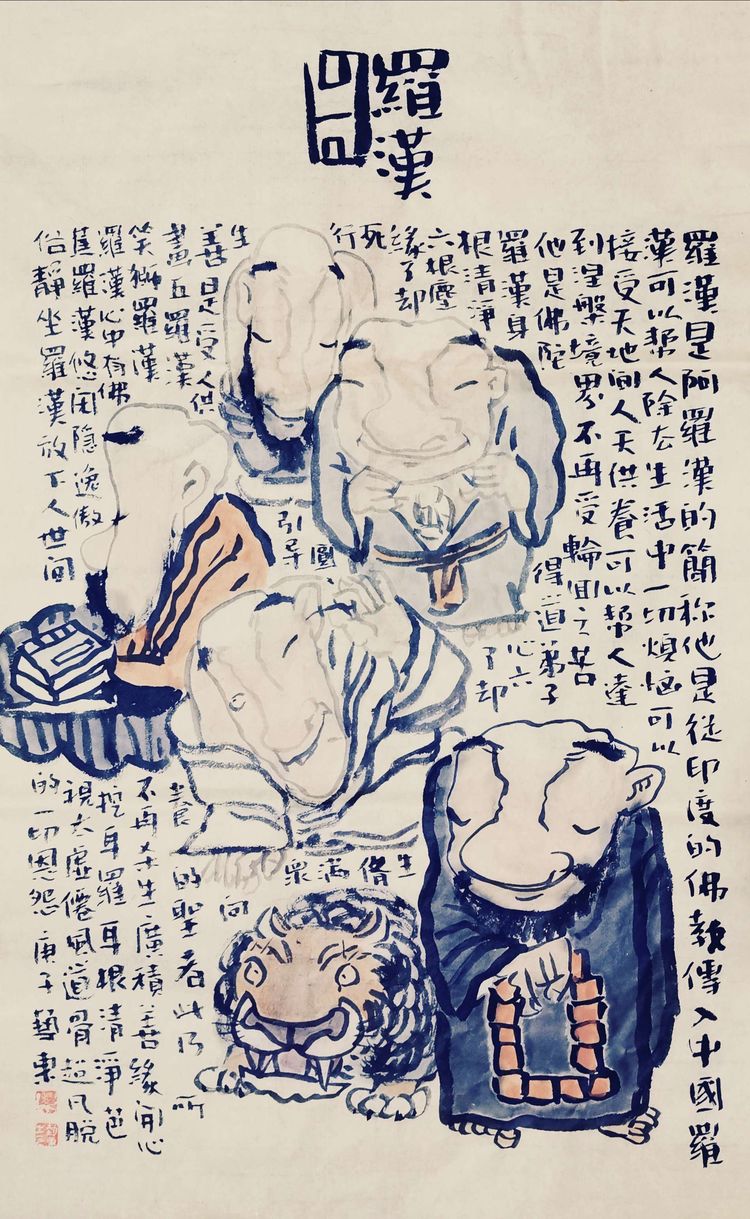 羅漢
羅漢是阿羅漢的簡称他是從印度的佛教傳入中國羅
漢可以幫人除去生活中一切煩惱可以
接受天地间人天供養可以幫人達
到涅槃境界不再受輪回之苦
他是佛陀得道弟子
羅漢身心六
根清淨了却
六根塵
緣了却
死
行
圓
引导
生
善
是受人供
畫五羅漢
笑獅羅漢
羅漢心中有佛
蕉羅漢悠闲隐逸傲
俗靜坐羅漢放下人世间
生
脩
滿
眾
向
的聖者此乃所
不再生廣積善緣開心
挖耳羅耳根清淨芭
視太虛僊風道骨超凡脱
的一切恩怨庚子藝東